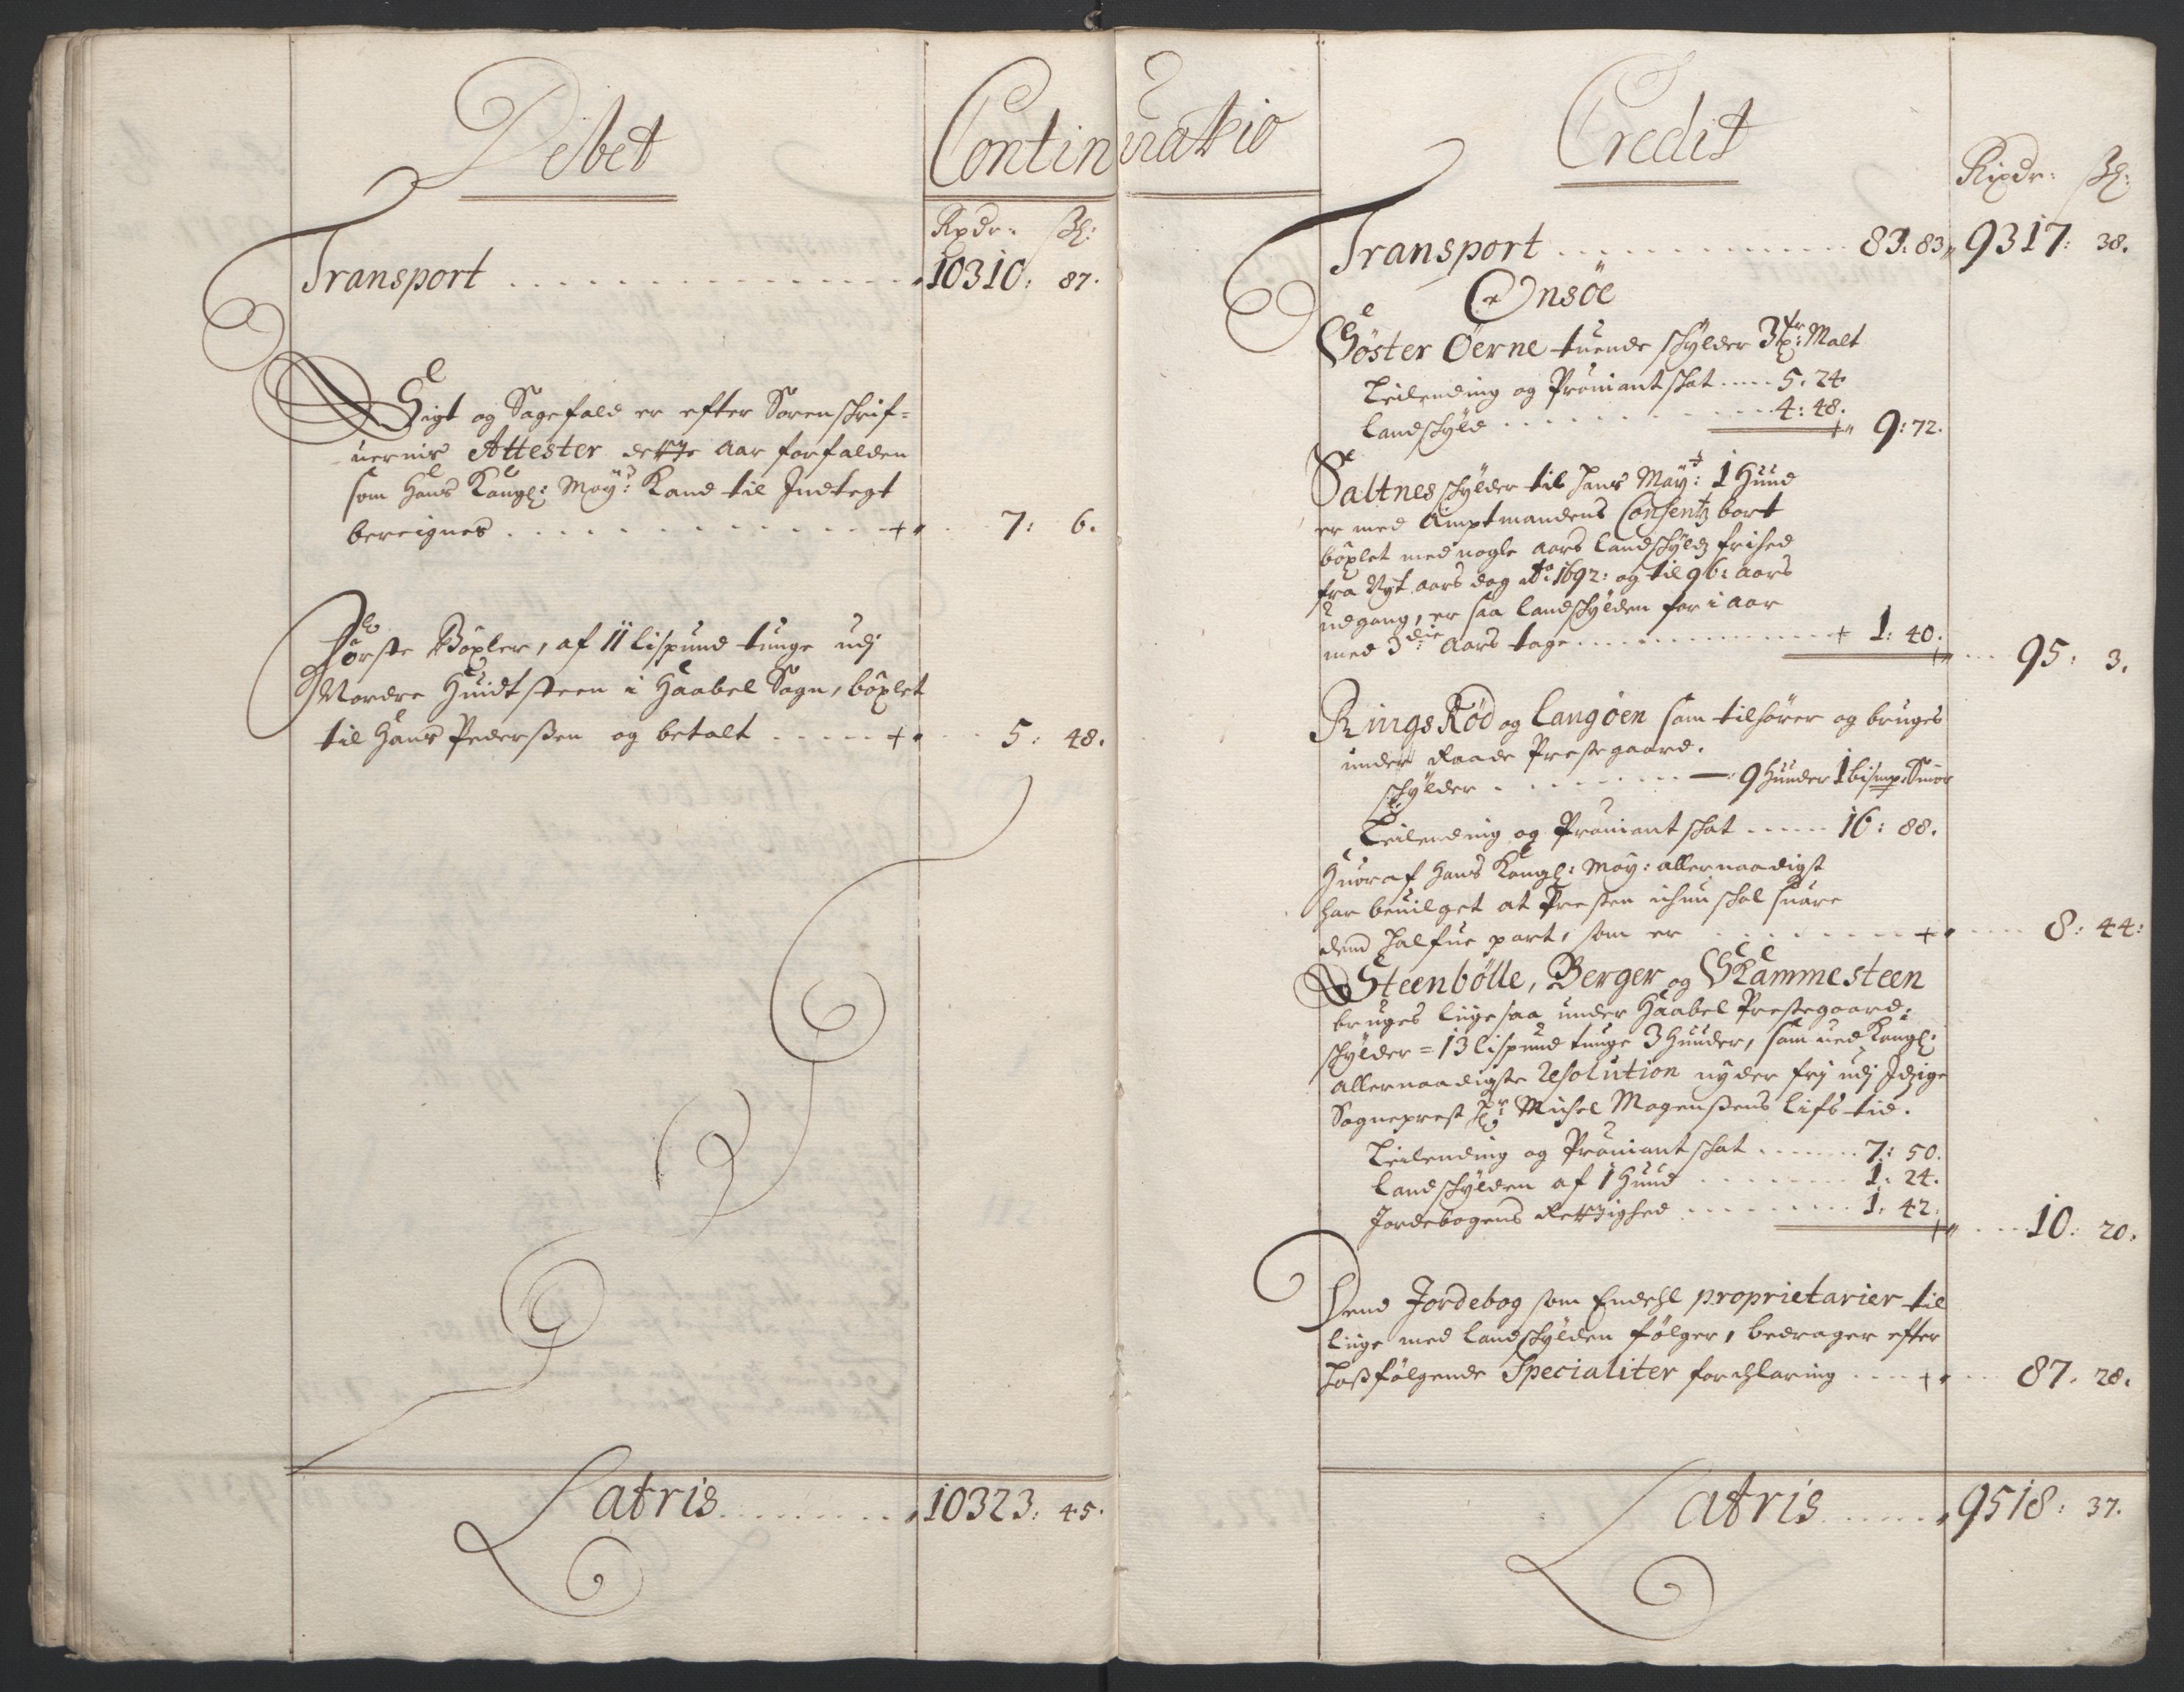 Debet
Continuatio
Rxdr: ſß:
Transport 10310: 87.
Sigt og Sagefald er efter Sorenschrif=
uernis Attester dette Aar forfalden
som Hans Kongl: May: Kand til Indtegt
bereignes 7: 6.
Förste Böxler, af 11 lispund tunge udj
Nordre Huidtsteen i Haabel Sogn, böxlet
til Hans Pederßen og betalt 5: 48.
Latris 10323: 45.
Credit
Rixdr: ſß:
Transport 83: 83 9317: 38.
Onsöe
Söster Öerne tuende schylder 3 tr: Malt
Leilending og Prouiant schat 5. 24
Landschyld 4: 48. 9: 72.
Saltnes schylder til hans May: 1 Hund
er med Amptmandens Consentz bort
böxlet med nogle Aars Landschyldz frihed
fra Nyt Aars dag Ao: 1692: og til 96: aars
udgang, er saa Landschylden for i Aar
med 3die Aars tage 1: 40. 95: 3.
Rings Röd og Langöen som tilhörer og bruges
under Raade Prestegaard.
schylder 9 Hunder 1 bismp: Smör
Leilending og Prouiant schat 16: 88.
Huoraf Hans Kongl: May: allernaadigst
har beuilget at Presten ichun schal suare
dend halfue part, som er 8: 44:
Steenbölle, Berger og Skammesteen
bruges liigesaa under Haabel Prestegaard,
schylder = 13 lispund tunge 3 Hunder, som ued Kongl:
allernaadigste Resolution nyder frj udj Idzige
Sogneprest Hr: Michel Mogenßens lifs tid.
Leilending og Prouiant schat 7: 50.
Landschylden af 1 Hund 1: 24.
Jordebogens Rettighed 1: 42. 10: 20.
Dend Jordebog som Endehl proprietarier til
liige med Landschylden fölger, bedrager efter
hoßfölgende Specialiter forchlaring 87. 28.
Latris 9518: 37.